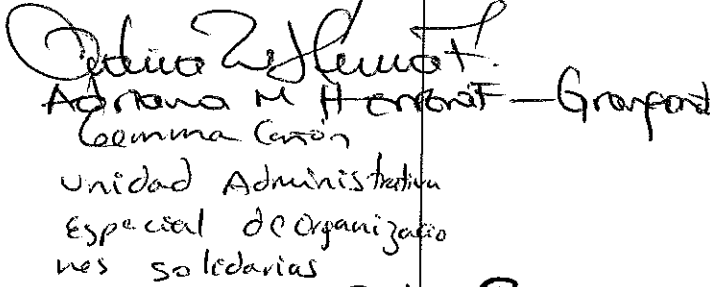 Adriana M Herrera F - Granfond
Gemma Cañon
Unidad Administrativa
Especial de Organizacio
nes solidarias